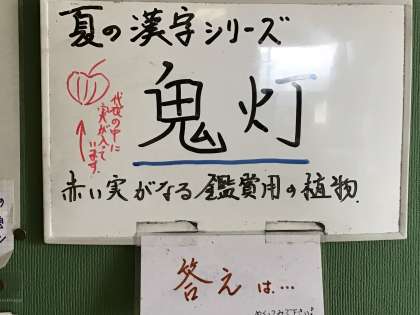 夏の漢字シリーズ
鬼灯
代役の中に
実が入って
います。
赤い実がなる鑑費用の植物
答えは…
めくってみて下さい!